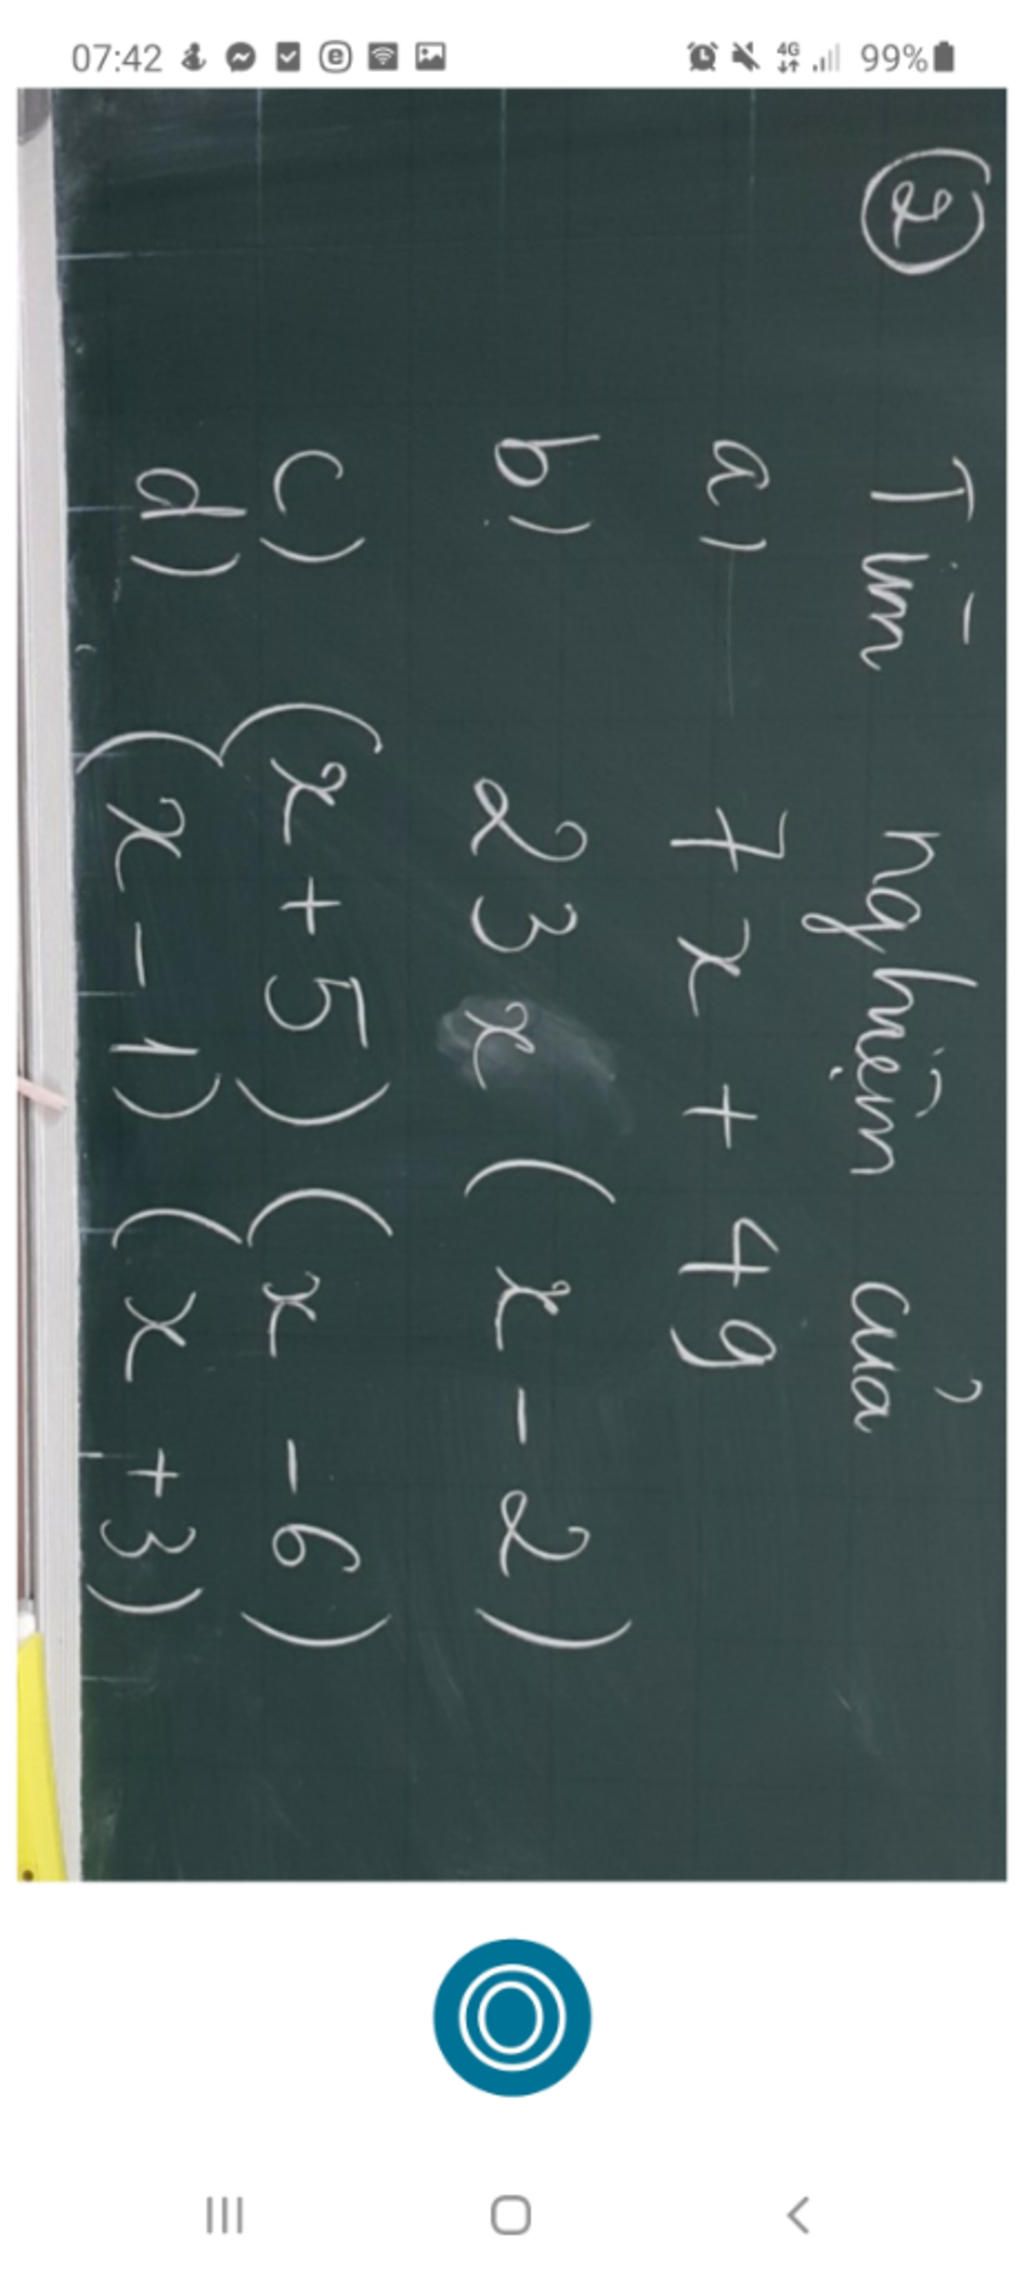 07:42 4G 99%
② Tìm nghiệm của
a) 7x + 49
b) 23x (x - 2)
c) (x + 5) (x - 6)
d) (x - 1) (x + 3)